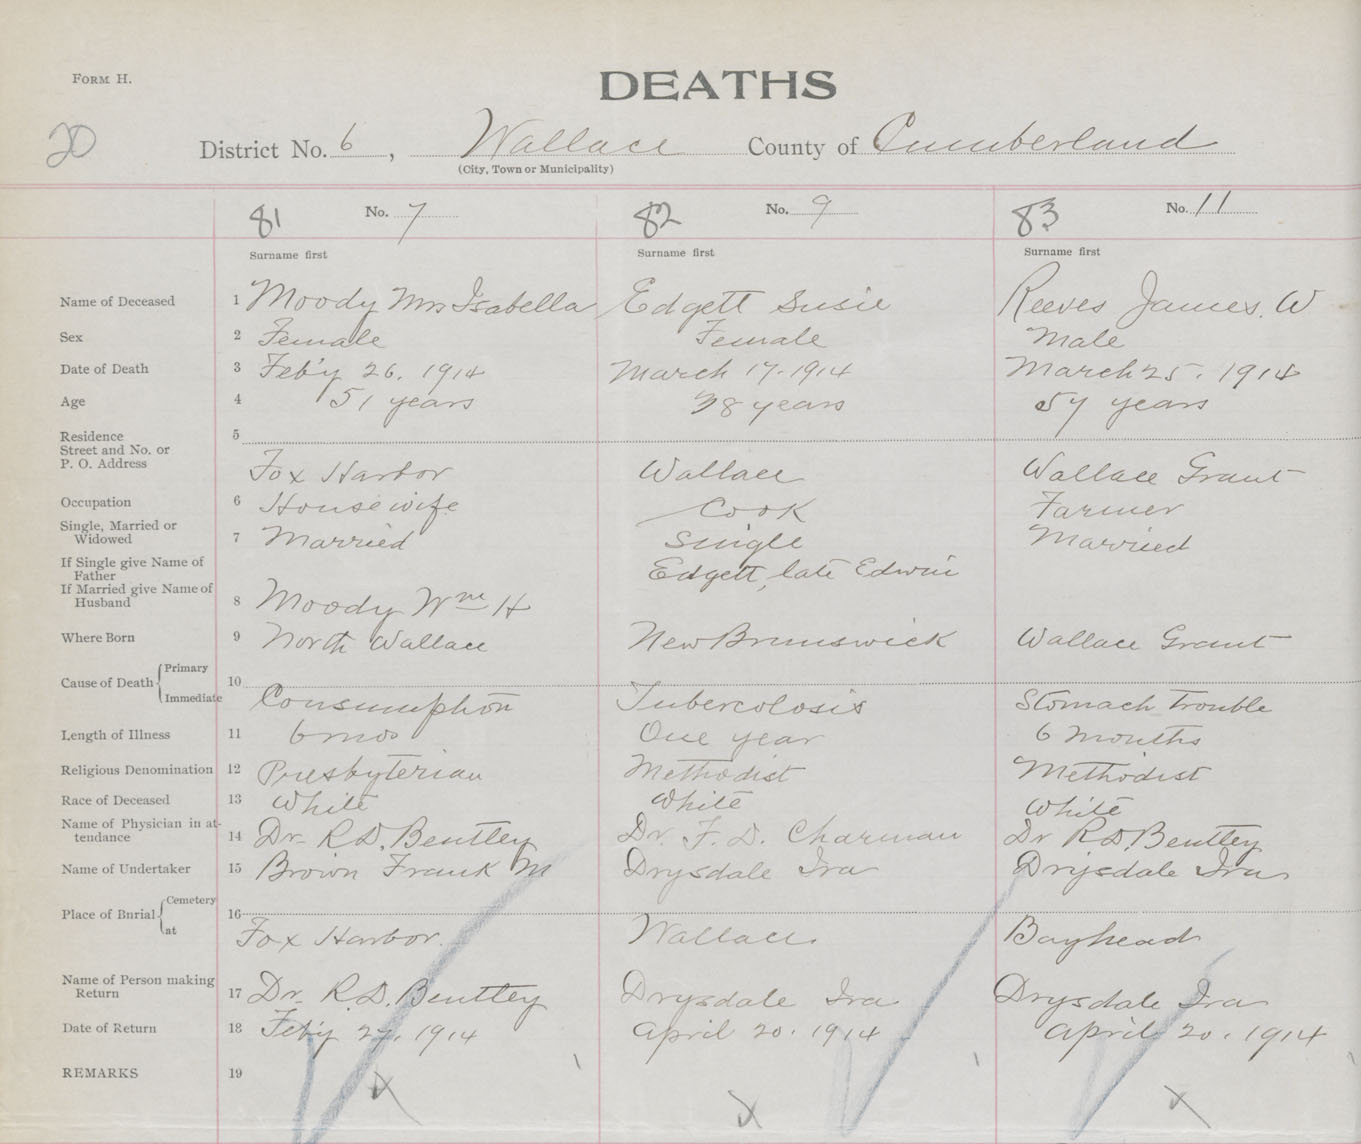 FORM H.
DEATHS
20
District No. 6, Wallace County of Cumberland
(City, Town or Municipality)
81 No. 7 82 No. 9 83 No. 11
Surname first Surname first Surname first
Name of Deceased 1 Moody Mrs Isabella Edgett Susie Reeves James. W
Sex 2 Female Female Male
Date of Death 3 Feb'y 26. 1914 March 17. 1914 March 25. 1914
Age 4 51 years 38 years 57 years
Residence 5
Street and No. or
P. O. Address Fox Harbor Wallace Wallace Grant
Occupation 6 Housewife Cook Farmer
Single, Married or
Widowed 7 Married Single Married
If Single give Name of
Father Edgett, late Edwin
If Married give Name of
Husband 8 Moody Wm H
Where Born 9 North Wallace New Brunswick Wallace Grant
Cause of Death { Primary 10
Immediate Consumption Tubercolosis Stomach trouble
Length of Illness 11 6 mos One year 6 months
Religious Denomination 12 Presbyterian Methodist Methodist
Race of Deceased 13 White White White
Name of Physician in at-
tendance 14 Dr. R. D. Bentley Dr. F. D. Charman Dr R. D. Bentley
Name of Undertaker 15 Brown Frank M Drysdale Ira Drysdale Ira
Place of Burial { Cemetery 16
at Fox Harbor. Wallace. Bayhead
Name of Person making
Return 17 Dr. R. D. Bentley Drysdale Ira Drysdale Ira
Date of Return 18 Feb'y 27. 1914 April 20. 1914 April 20. 1914
REMARKS 19